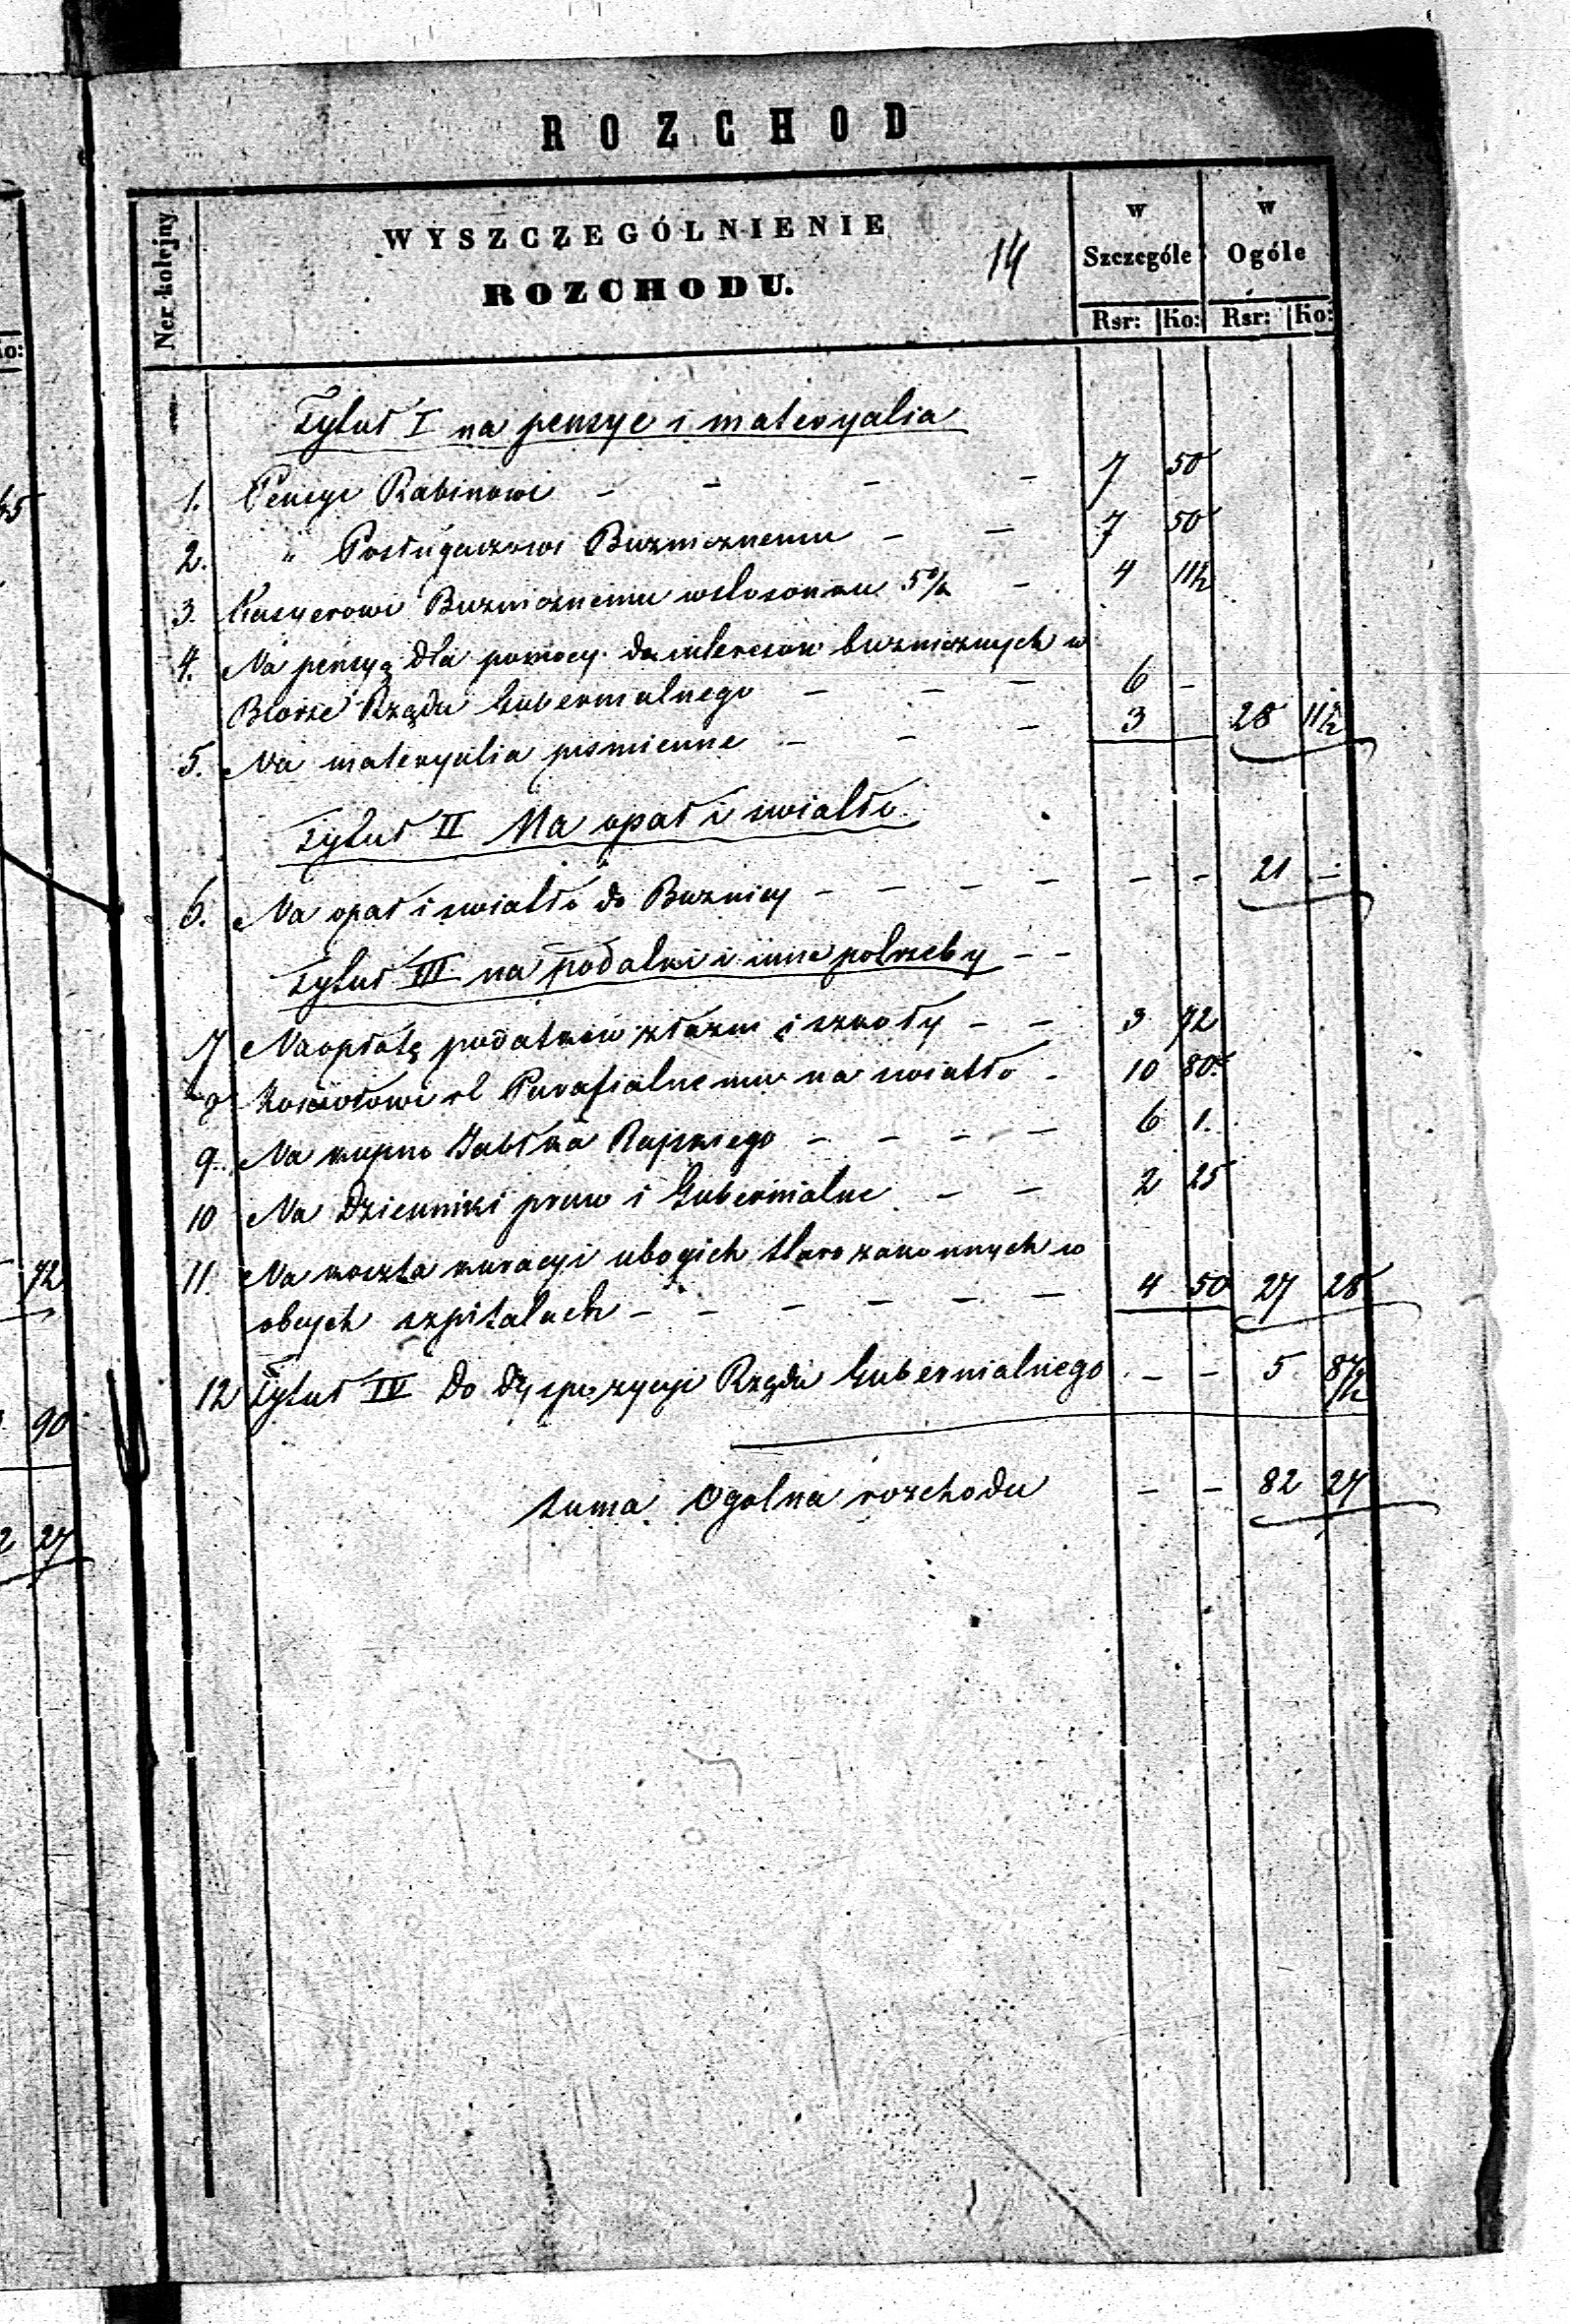 ROZCHOD
Ner kolejny
WYSZCZEGÓLNIENIE
ROZCHODU.
14
w Szczególe
w Ogóle
Rsr: Ko: Rsr: Ko:
Tytuł I na pensye i materyalia
1. Pensye Rabinowi - - - - 7 50
2. " Posługaczowi Bużnicznemu - - 7 50
3. Kasyerowi Bużnicznemu w stosunku 5% - 4 11½
4. Na pensyą dla pomocy do interesów bużnicznych w
Biórze Rządu Gubernialnego - - - 6 -
5. Na materyalia piśmienne - - - 3 28 11½
Tytuł II Na opał i swiatło
6. Na opał i swiatło do Bużnicy - - - - - - 21 -
Tytuł III na podatki i inne potrzeby - -
7 Na opłatę podatków i szkoły - - 3 72
8 Kościołowi Parafialnemu na swiatło - 10 80
9. Na kupno Jabłka Rajskiego - - - - 6 1.
10 Na Dzienniki praw i Gubernialne - - 2 25
11. Na koszta kuracyi ubogich starozakonnych w
obcych szpitalach - - - - - - 4 50 27 28
12 Tytuł IV Do dyspozycyi Rządu Gubernialnego - - 5 87½
Suma Ogolna rozchodu - - 82 27
45
72
90
2 27
Ko: